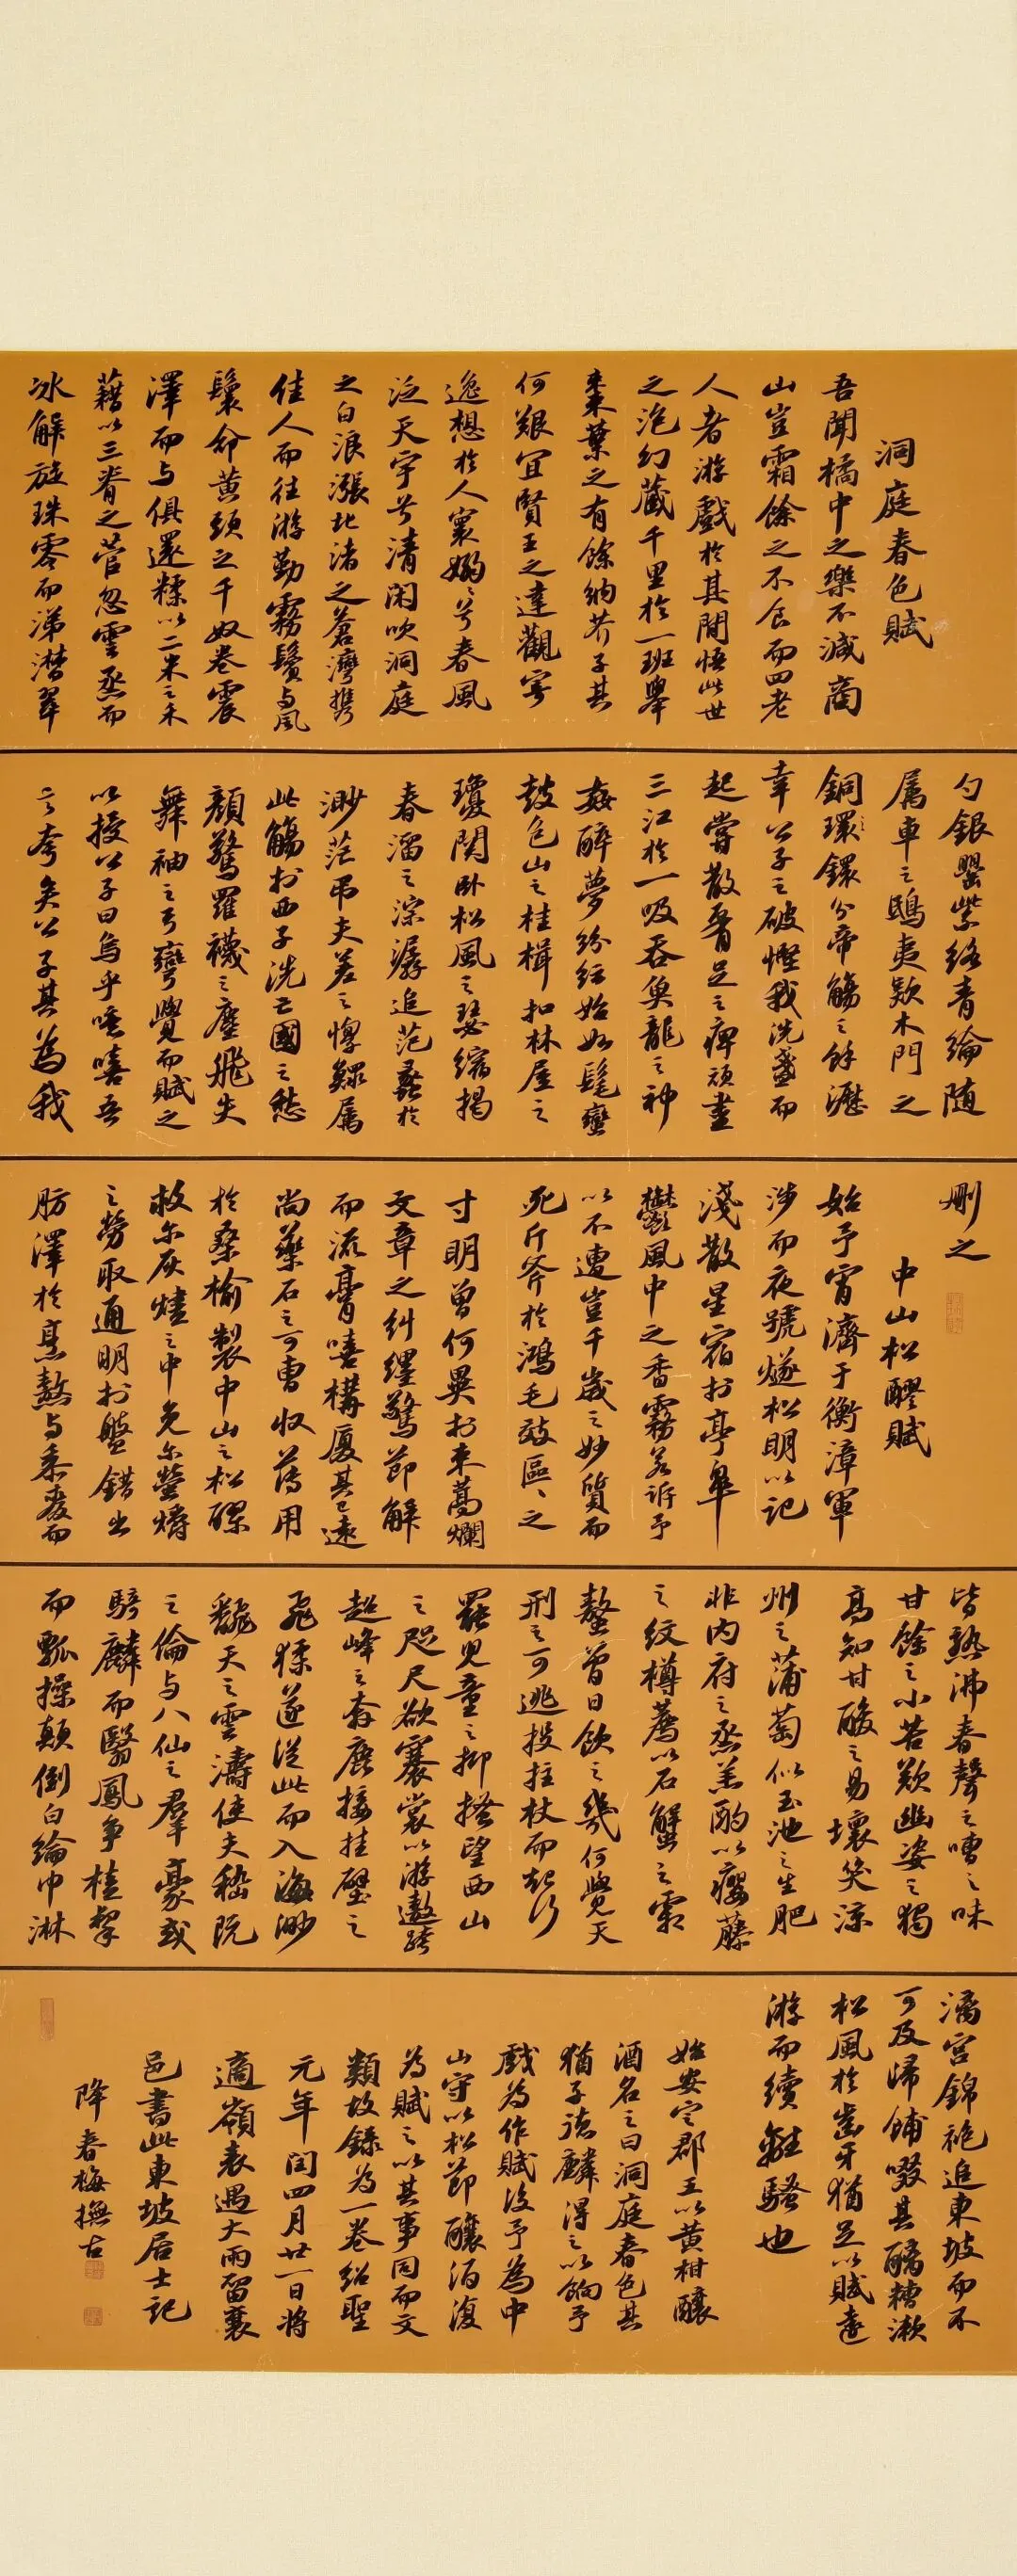 洞庭春色賦
吾聞橘中之樂不減商
山豈霜餘之不食而四老
人者游戲於其間悟此世
之泡幻藏千里於一班舉
棗葉之有餘納芥子其
何艱宜賢王之達觀寄
逸想於人寰嫋〻兮春風
泛天宇兮清閑吹洞庭
之白浪漲北渚之蒼灣攜
佳人而往游勤霧鬢與風
鬟命黃頭之千奴卷震
澤而与俱還糅以二米之禾
藉以三脊之菅忽雲烝而
冰解旋珠零而涕潸翠
勺銀罌紫絡青綸随
属車之鴟夷欵木門之
銅環鑌分帝觴之餘瀝
幸公子之破慳我洗盞而
起嘗散腰足之痺頑盡
三江於一吸吞魚龍之神
姦醉夢紛紜始如髦蠻
鼓包山之桂楫扣林屋之
瓊關卧松風之瑟縮揭
春溜之淙潺追范蠡於
渺茫弔夫差之惸鰥属
此觴於西子洗亡國之愁
顏驚羅襪之塵飛失
舞袖之弓彎覺而賦之
以授公子曰烏乎噫嘻吾
言夸矣公子其為我
刪之
中山松醪賦
始予宵濟于衡漳軍
涉而夜號燧松明以記
淺散星宿於亭皋
鬱風中之香霧若訴予
以不遭豈千歲之妙質而
死斤斧於鴻毛效區〻之
寸明曾何異於束蒿爛
文章之糾纆驚節解
而流膏嘻構厦其已遠
尚藥石之可曹収薄用
於桑榆製中山之松醪
救尔灰燼之中免尔螢爝
之勞取通明於盤錯出
肪澤於烹熬与黍麥而
皆熟沸春聲之嘈〻味
甘餘之小苦歎幽姿之獨
高知甘酸之易壞笑涼
州之蒲萄似玉池之生肥
非内府之烝羔酌以癭藤
之紋樽薦以石蟹之霜
螯曾日飲之幾何覺天
刑之可逃投拄杖而起行
罷兒童之抑搔望西山
之咫尺欲褰裳以游遨跨
超峰之奔鹿接挂壁之
飛猱遂從此而入海渺
翻天之雲濤使夫嵇阮
之倫与八仙之群豪或
騎麟而翳鳳争榼挈
而瓢操顛倒白綸巾淋
漓宮錦袍追東坡而不
可及歸餔歠其醨糟漱
松風於齒牙猶足以賦遠
游而續離騷也
始安定郡王以黄柑釀
酒名之曰洞庭春色其
猶子德麟得之以餉予
戲為作賦後予為中
山守以松節釀酒復
為賦之以其事同而文
類故錄為一卷紹聖
元年閏四月廿一日將
適嶺表遇大雨留襄
邑書此東坡居士記
降春梅撫古